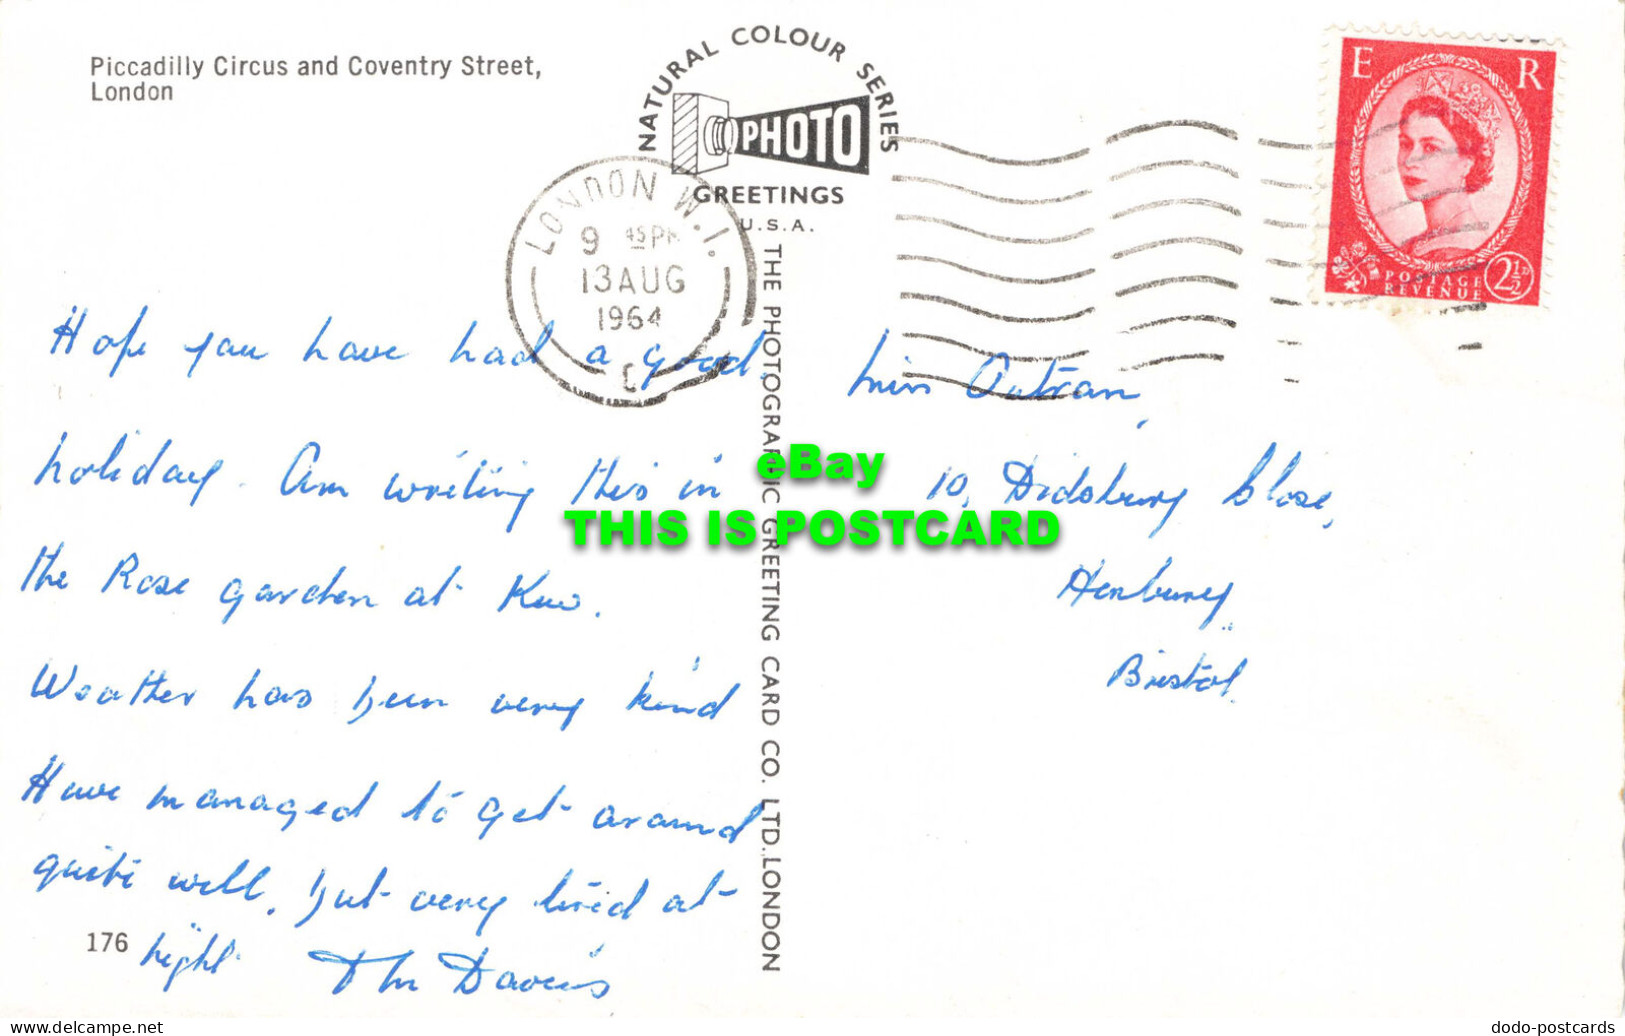 Piccadilly Circus and Coventry Street,
London
NATURAL COLOUR SERIES
PHOTO
GREETINGS
U.S.A.
LONDON W.1.
9 45 PM
13 AUG
1964
E R
POSTAGE
REVENUE
2½D
THE PHOTOGRAPHIC GREETING CARD CO. LTD. LONDON
Hope you have had a good
holiday. Am writing this in
the Rose garden at Kew.
Weather has been very kind
Have managed to get around
quite well, but very tired at
night
Davis
176
Miss Outran,
10, Didsbury Close,
Henbury,
Bristol.
eBay
THIS IS POSTCARD
dodo-postcards
delcampe.net